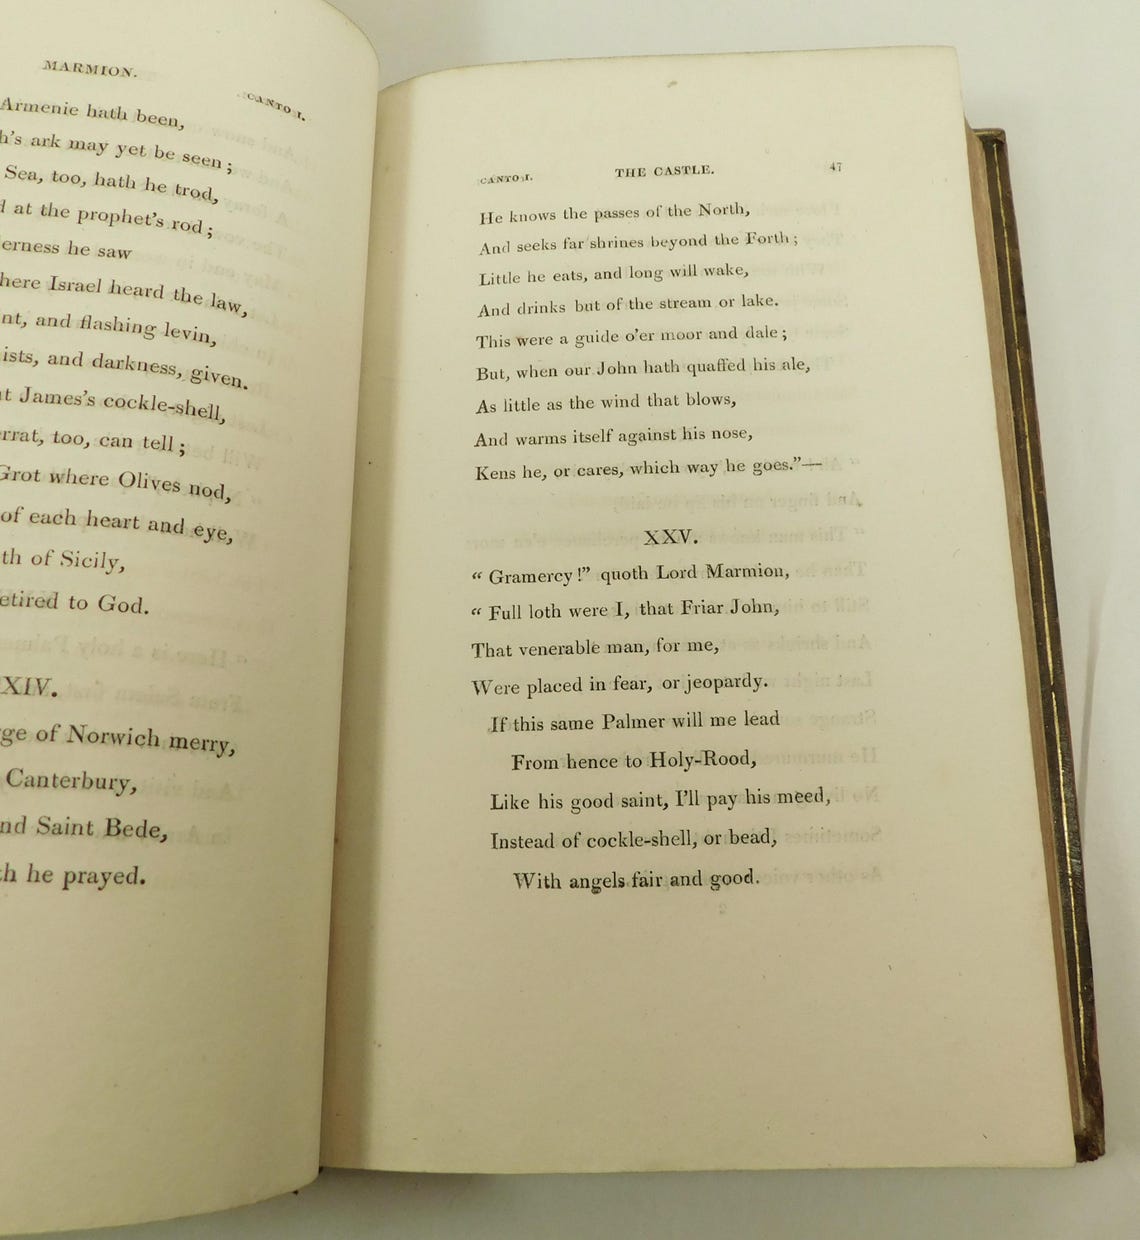 MARMION.
CANTO I.
Armenie hath been,
ark may yet be seen;
Sea, too, hath he trod,
at the prophet's rod;
he saw
Israel heard the law,
and flashing levin,
and darkness, given.
James's cockle-shell,
too, can tell;
Grot where Olives nod,
of each heart and eye,
of Sicily,
to God.
XIV.
of Norwich merry,
Canterbury,
Saint Bede,
he prayed.
CANTO I.
THE CASTLE.
47
He knows the passes of the North,
And seeks far shrines beyond the Forth;
Little he eats, and long will wake,
And drinks but of the stream or lake.
This were a guide o'er moor and dale;
But, when our John hath quaffed his ale,
As little as the wind that blows,
And warms itself against his nose,
Kens he, or cares, which way he goes."—
XXV.
"Gramercy!" quoth Lord Marmion,
"Full loth were I, that Friar John,
That venerable man, for me,
Were placed in fear, or jeopardy.
If this same Palmer will me lead
From hence to Holy-Rood,
Like his good saint, I'll pay his meed,
Instead of cockle-shell, or bead,
With angels fair and good.